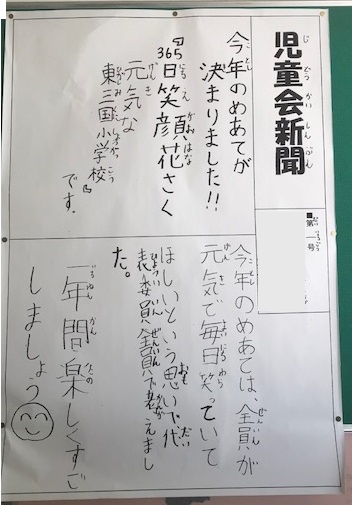 児童会新聞
じどうかいしんぶん
■第一号
だいいちごう
今年のめあてが
決まりました!!
『365日笑顔花さく
元気な
東三国小学校』
です。
今年のめあては、全員が
元気で毎日笑っていて
ほしいという思いで代
表委員全員で考えまし
た。
一年間楽しくすご
しましょう